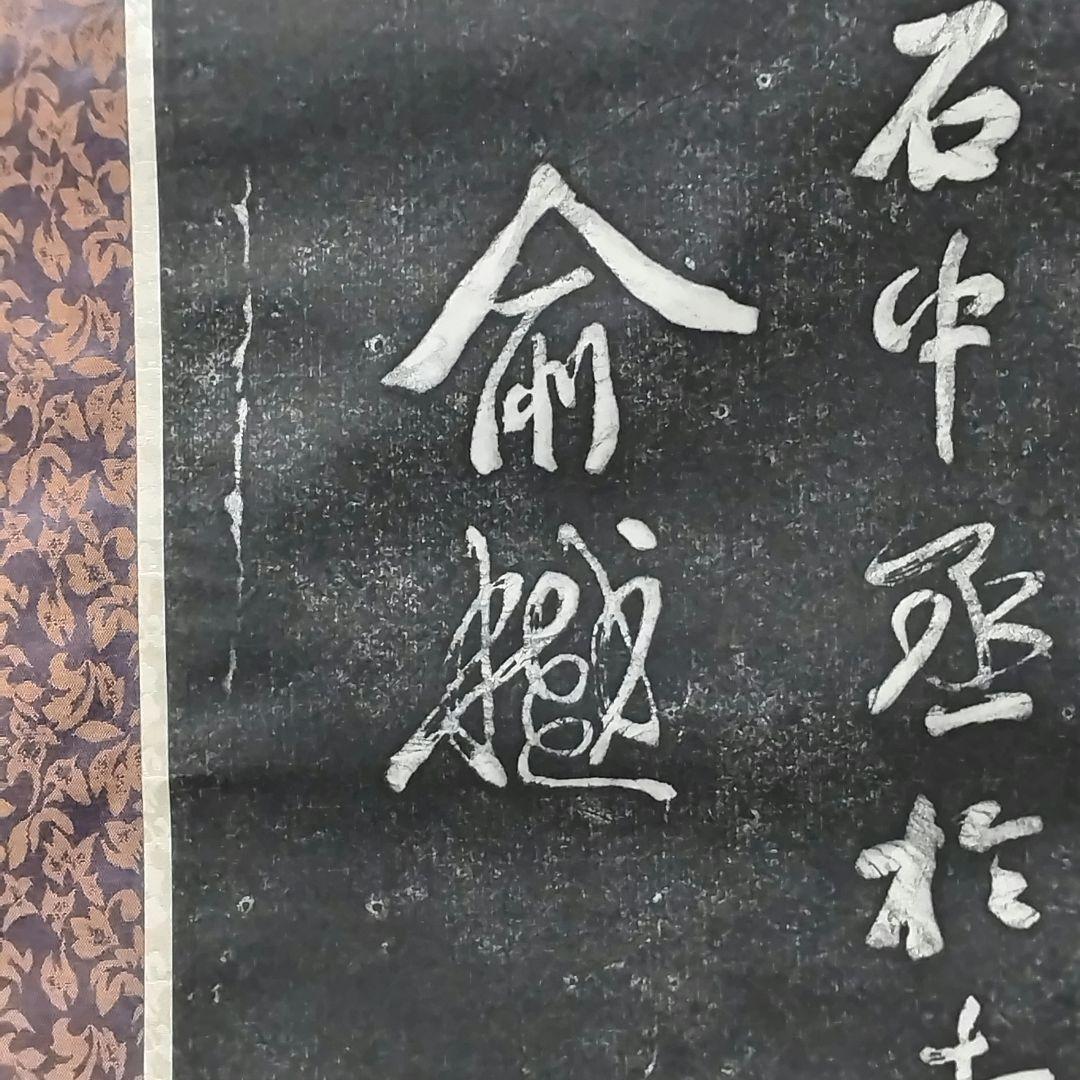 石中丞於
俞樾